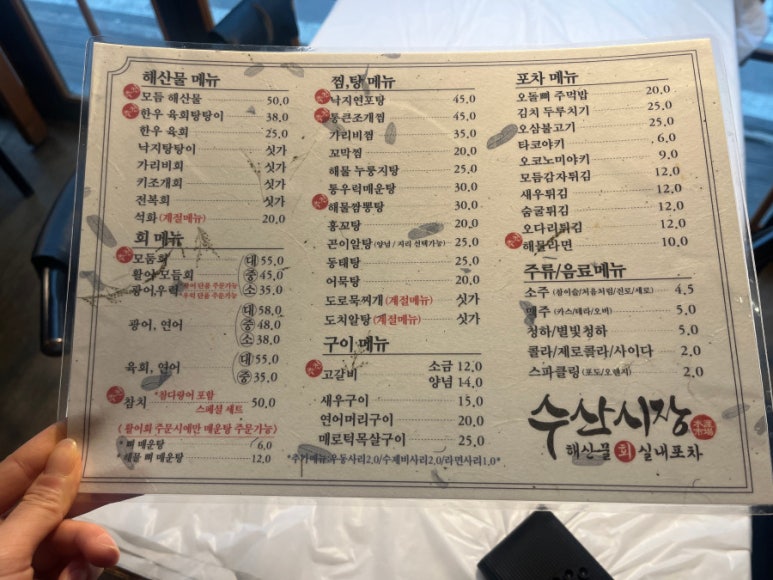 해산물 메뉴
모듬 해산물 50,0
한우 육회탕탕이 38,0
한우 육회 25,0
낙지탕탕이 싯가
가리비회 싯가
키조개회 싯가
전복회 싯가
석화(계절메뉴) 20,0
회 메뉴
모듬회 대 55,0
활어 모듬회 중 45,0
광어,우럭 *광어 단품 주문가능 *우럭 단품 주문가능 소 35,0
대 58,0
광어, 연어 중 48,0
소 38,0
육회, 연어 대 55,0
중 35,0
참치 *참다랑어 포함 스페셜 세트 50,0
( 활어회 주문시에만 매운탕 주문가능 )
* 뼈 매운탕 6,0
* 해물 뼈 매운탕 12,0
찜,탕 메뉴
낙지연포탕 45,0
통큰조개찜 45,0
가리비찜 35,0
꼬막찜 20,0
해물 누룽지탕 25,0
통우럭매운탕 30,0
해물짬뽕탕 30,0
홍꼬탕 20,0
곤이알탕(양념 / 지리 선택가능) 25,0
동태탕 25,0
어묵탕 20,0
도로묵찌개 (계절메뉴) 싯가
도치알탕 (계절메뉴) 싯가
구이 메뉴
고갈비 소금 12,0
양념 14,0
새우구이 15,0
연어머리구이 20,0
매로턱목살구이 25,0
*추가메뉴:우동사리2,0/수제비사리2,0/라면사리1,0*
포차 메뉴
오돌뼈 주먹밥 20,0
김치 두루치기 25,0
오삼불고기 25,0
타코야키 6,0
오코노미야키 9,0
모듬감자튀김 12,0
새우튀김 12,0
숨굴튀김 12,0
오다리튀김 12,0
해물라면 10,0
주류/음료메뉴
소주 (참이슬/처음처럼/진로/새로) 4,5
맥주 (카스/테라/오비) 5,0
청하/별빛청하 5,0
콜라/제로콜라/사이다 2,0
스파클링 (포도/오렌지) 2,0
수산시장
해산물 회 실내포차